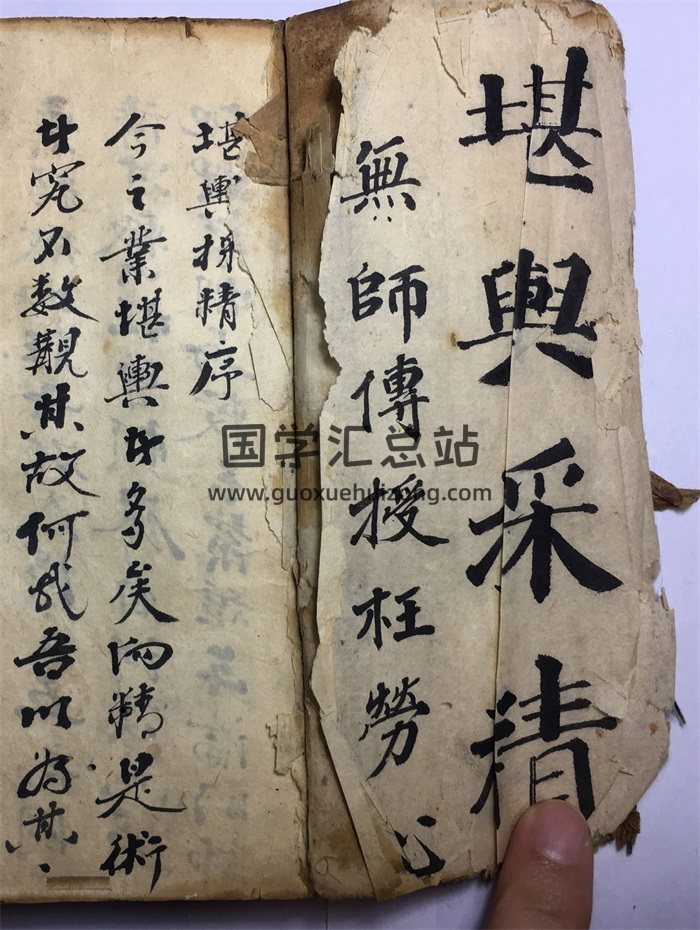 堪輿采精
無師傳授枉勞心
堪輿採精序
今之業堪輿者多矣而精是術
者究不数覯其故何哉吾以為其
国学汇总站
www.guoxuehuizong.com